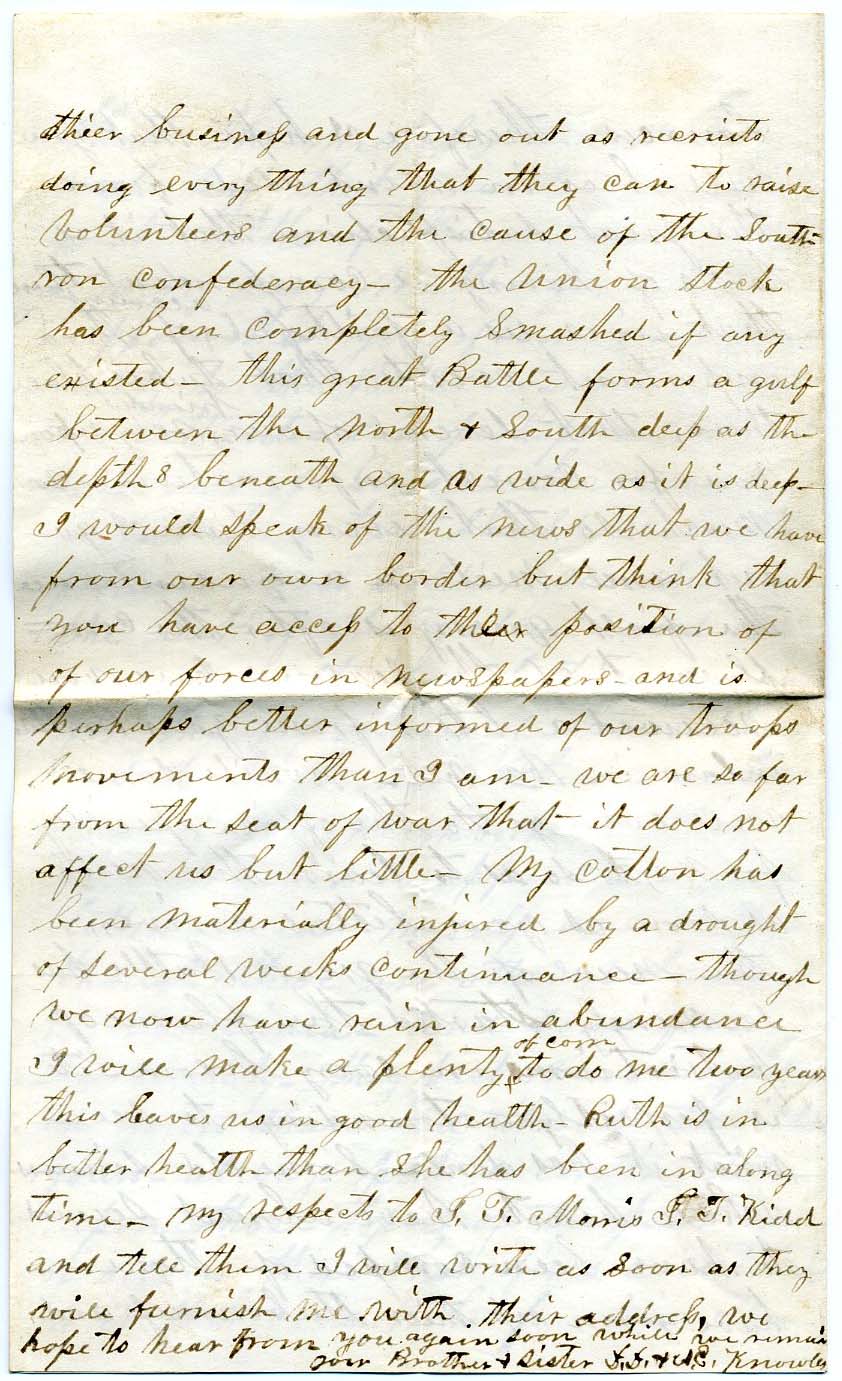 thier business and gone out as recruits
doing every thing that they can to raise
volunteers and the cause of the South-
ron confederacy - the Union stock
has been completely smashed if any
existed - this great Battle forms a gulf
between the North & South deep as the
depths beneath and as wide as it is deep -
I would speak of the news that we have
from our own border but think that
you have access to their position of
of our forces in newspapers - and is
perhaps better informed of our troops
movements than I am - we are so far
from the seat of war that it does not
affect us but little - My cotton has
been materially injured by a drought
of several weeks continuance - though
we now have rain in abundance
I will make a plenty of corn to do me two years
this leaves us in good health - Ruth is in
better health than she has been in along
time - my respects to T. Morris T. Kidd
and tell them I will write as soon as they
will furnish me with their address, we
hope to hear from you again soon while we remain
your Brother & sister Knowles